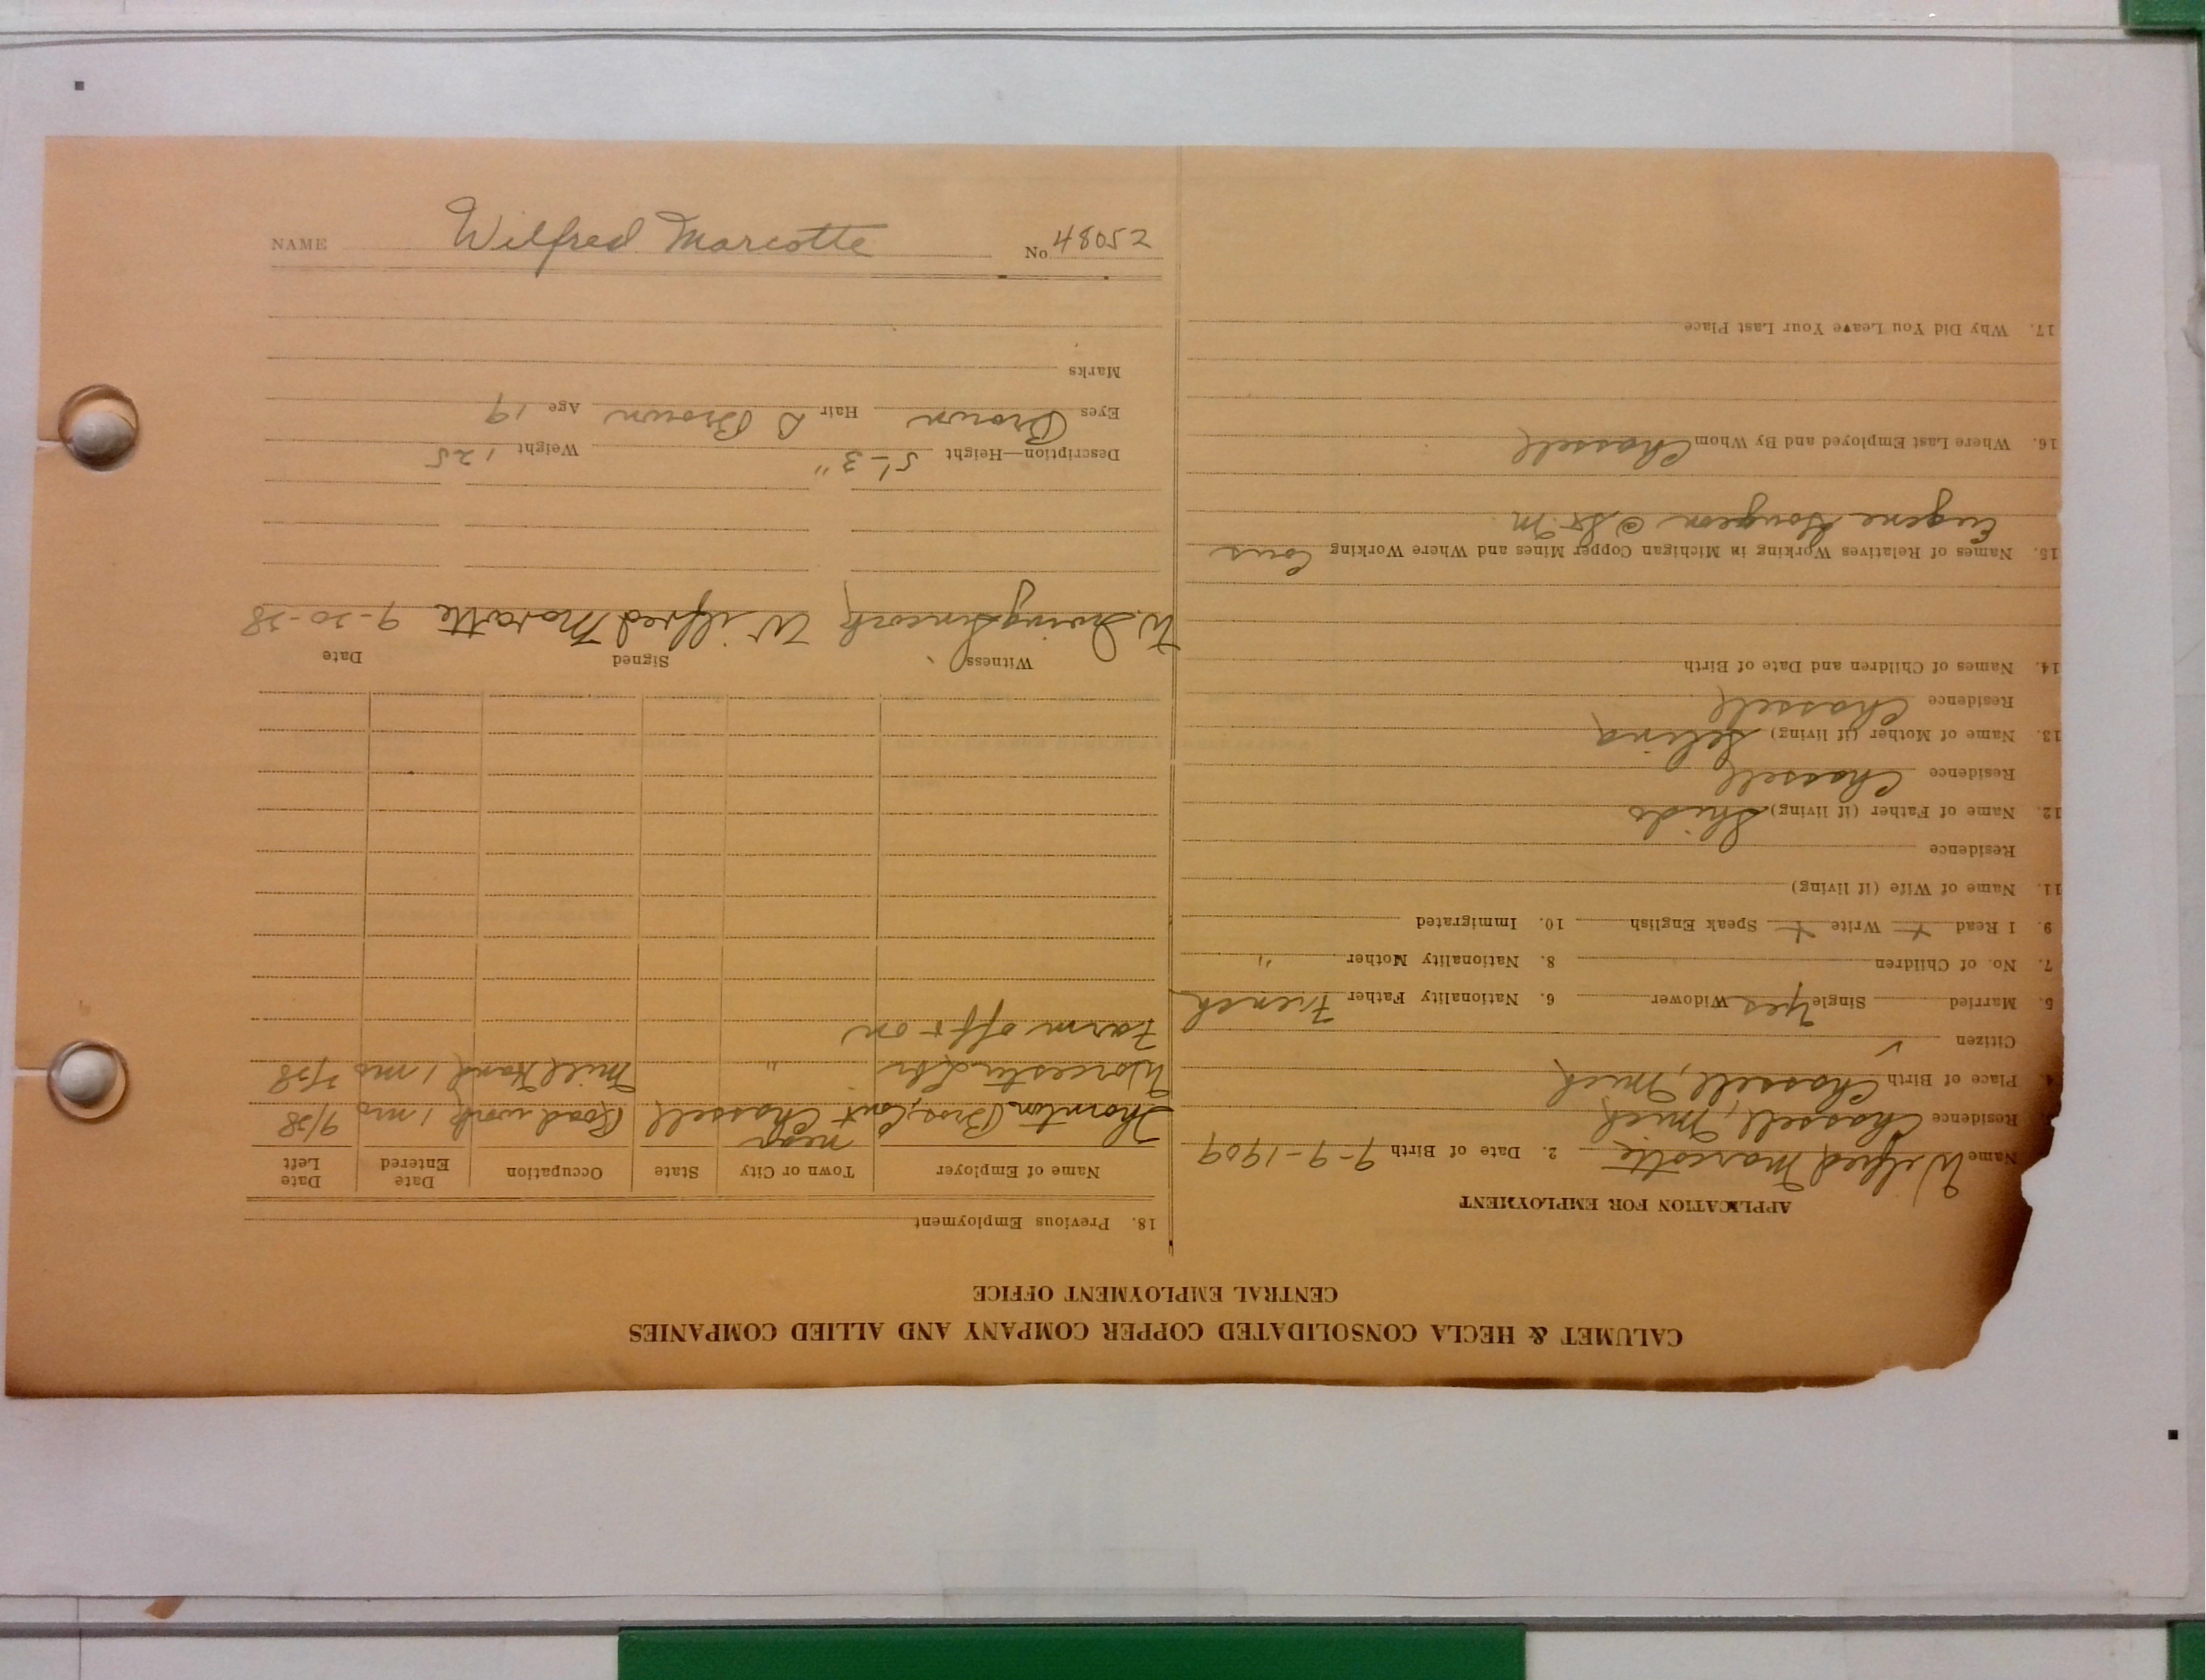 CALUMET & HECLA CONSOLIDATED COPPER COMPANY AND ALLIED COMPANIES
CENTRAL EMPLOYMENT OFFICE
APPLICATION FOR EMPLOYMENT
Name Wilfred Marcotte 2. Date of Birth 9-9-1909
Residence Chassell, Mich
4. Place of Birth Chassell, Mich
Citizen ✓
5. Married Single Yes Widower 6. Nationality Father French
7. No. of Children 8. Nationality Mother "
9. I Read + Write + Speak English 10. Immigrated
11. Name of Wife (if living)
Residence
12. Name of Father (if living)
Residence Chassell
13. Name of Mother (if living) Selina
Residence Chassell
14. Names of Children and Date of Birth
15. Names of Relatives Working in Michigan Copper Mines and Where Working Cous
Eugene Gougeon @ St. M
16. Where Last Employed and By Whom Chassell
17. Why Did You Leave Your Last Place
18. Previous Employment
Name of Employer Town or City State Occupation Date Entered Date Left
Thornton Bros, Cont near Chassell Road work 1 mo 9/28
Worcester Lbr " Mill Hand 1 mo /28
Farm off + on
Witness Signed Date
W. Irving Wilfred Marcotte 9-20-28
Description—Height 5'-3" Weight 125
Eyes Brown Hair D Brown Age 19
Marks
NAME Wilfred Marcotte No. 48052